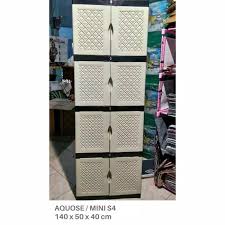 AQUOSE / MINI S4
140 x 50 x 40 cm